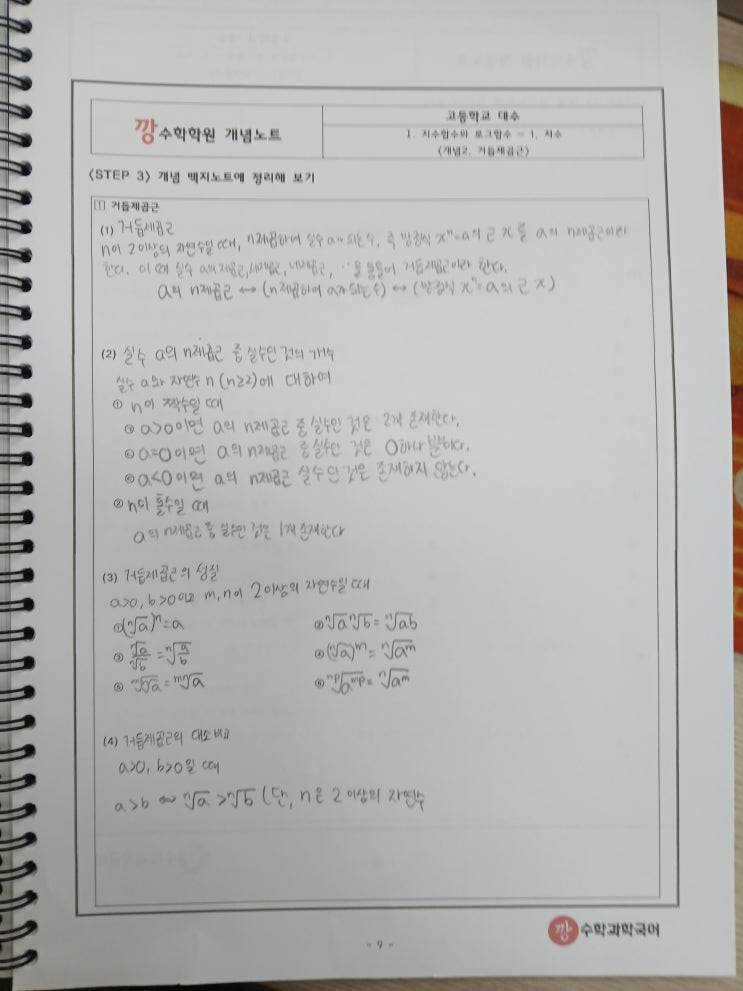 깡 수학학원 개념노트
고등학교 대수
I. 지수함수와 로그함수 - 1. 지수
(개념2. 거듭제곱근)
<STEP 3> 개념 백지노트에 정리해 보기
1 거듭제곱근
(1) 거듭제곱근
n이 2이상의 자연수일 때, n제곱하여 실수 a가 되는수, 즉 방정식 xⁿ=a의 근 x를 a의 n제곱근이라
한다. 이 때 실수 a의 제곱근, 세제곱근, 네제곱근, ⋯을 통틀어 거듭제곱근이라 한다.
a의 n제곱근 ↔ (n제곱하여 a가 되는수) ↔ (방정식 xⁿ=a의 근 x)
(2) 실수 a의 n제곱근 중 실수인 것의 개수
실수 a와 자연수 n (n≥2)에 대하여
① n이 짝수일 때
a>0이면 a의 n제곱근 중 실수인 것은 2개 존재한다.
a=0이면 a의 n제곱근 중 실수인 것은 0하나 뿐이다.
a<0이면 a의 n제곱근 실수인 것은 존재하지 않는다.
② n이 홀수일 때
a의 n제곱근 중 실수인 것은 1개 존재한다
(3) 거듭제곱근의 성질
a>0, b>0이고 m, n이 2이상의 자연수일 때
① (ⁿ√a)ⁿ=a ② ⁿ√a ⁿ√b = ⁿ√ab
③ ⁿ√a/ⁿ√b = ⁿ√(a/b) ④ (ⁿ√a)ᵐ = ⁿ√aᵐ
⑤ ᵐ√ⁿ√a = ᵐⁿ√a ⑥ ⁿᵖ√aᵐᵖ = ⁿ√aᵐ
(4) 거듭제곱근의 대소비교
a>0, b>0일 때
a>b ⇔ ⁿ√a > ⁿ√b (단, n은 2이상의 자연수
- 9 -
깡 수학과학국어